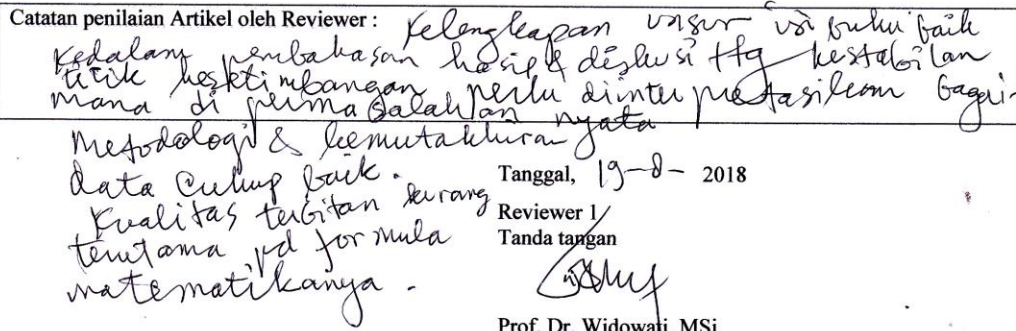 Catatan penilaian Artikel oleh Reviewer : Kelengkapan unsur isi buku baik
Kedalam pembahasan hasil & diskusi ttg kestabilan
titik kesetimbangan perlu diinterpretasikan bagai-
mana di permasalahan nyata
Metodologi & kemutakhiran
data cukup baik.
Kualitas terbitan kurang
terutama pd formula
matematikanya.
Tanggal, 19-8- 2018
Reviewer 1
Tanda tangan
Prof. Dr. Widowati, MSi